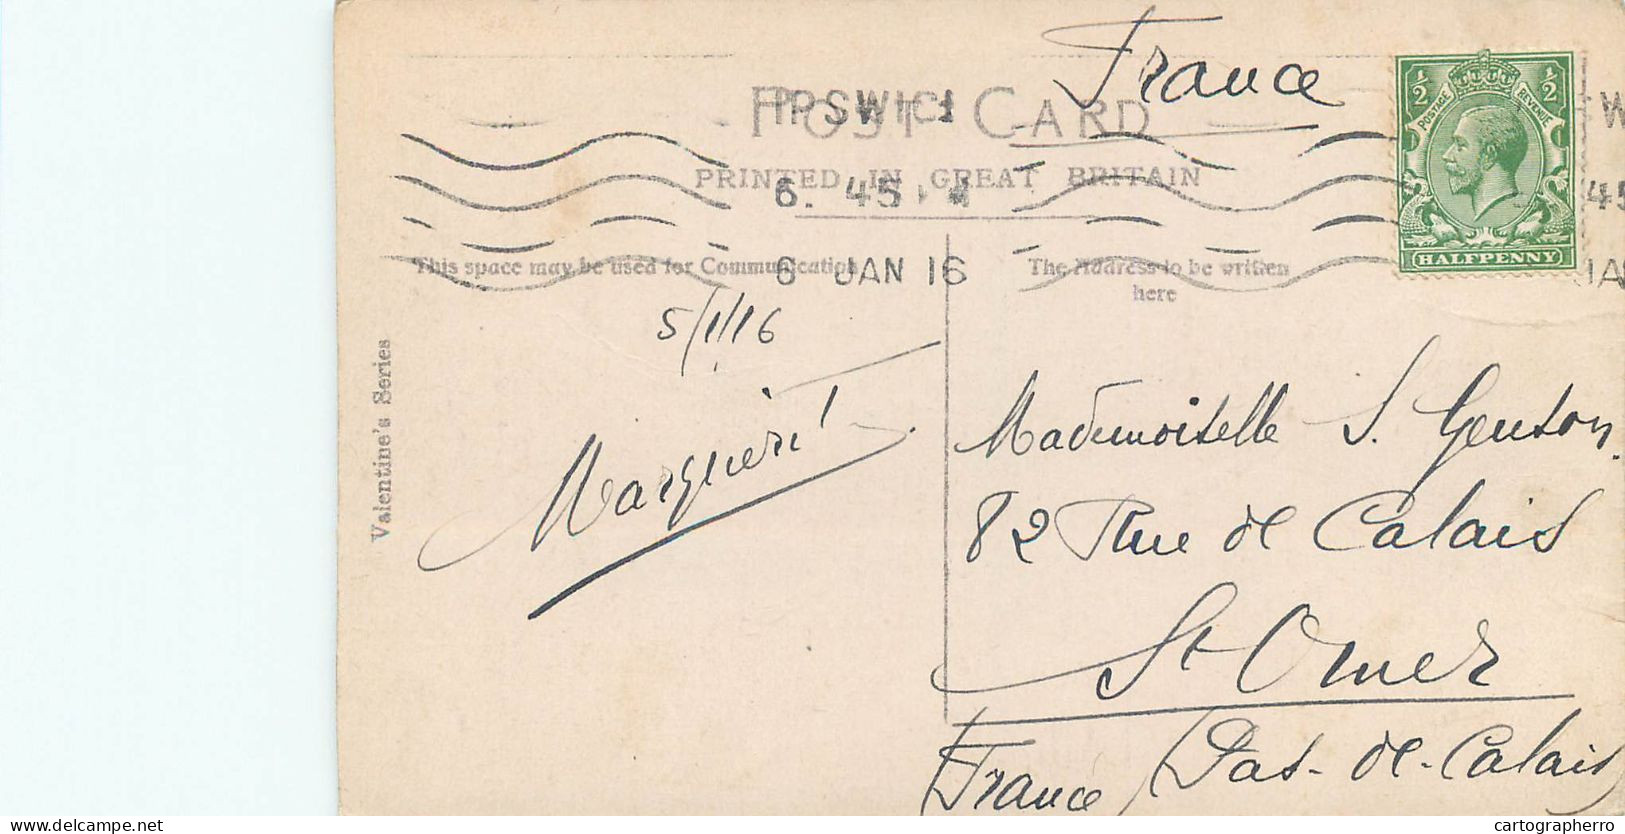 France
POST CARD
IPSWICH
PRINTED IN GREAT BRITAIN
6. 45
6 JAN 16
½ ½
POSTAGE REVENUE
HALFPENNY
W
45
JA
This space may be used for Communication
The Address to be written
here
Valentine's Series
5/1/16
Mademoiselle S. Genton
82 Rue de Calais
St Omer
France (Pas-de-Calais)
cartographerro